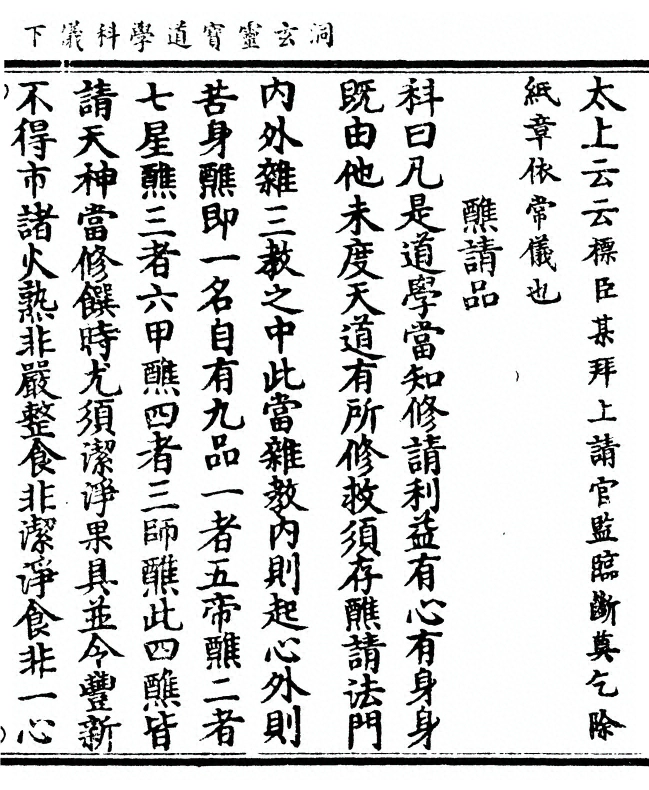 洞玄靈寶道學科儀下
太上云云標臣某拜上請官監臨斷奠乞除
紙章依常儀也
醮請品
科曰凡是道學當知修請利益有心有身身
既由他未度天道有所修救須存醮請法門
內外雜三教之中此當雜教內則起心外則
苦身醮即一名自有九品一者五帝醮二者
七星醮三者六甲醮四者三師醮此四醮皆
請天神當修饌時尤須潔淨果具並令豐新
不得市諸火熟非嚴整食非潔淨食非一心